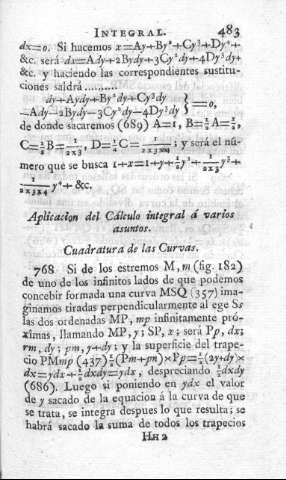 INTEGRAL. 483
dx=0. Si hacemos x=Ay+By²+Cy³+Dy⁴+
&c. será dx=Ady+2Bydy+3Cy²dy+4Dy³dy+
&c. y haciendo las correspondientes sustitu-
ciones saldrá..........
dy+Aydy+By²dy+Cy³dy
-Ady-2Bydy-3Cy²dy-4Dy³dy } =0,
de donde sacaremos (689) A=1, B=½A=½,
C=⅓B=1/2x3, D=¼C=1/2x3x4; y será el nú-
mero que se busca 1+x=1+y+½y²+1/2x3 y³+
1/2x3x4 y⁴+ &c.
Aplicacion del Cálculo integral á varios
asuntos.
Cuadratura de las Curvas.
768 Si de los estremos M, m (fig. 182)
de uno de los infinitos lados de que podemos
concebir formada una curva MSQ (357) ima-
ginamos tiradas perpendicularmente al ege Ss
las dos ordenadas MP, mp infinitamente pró-
ximas, llamando MP, y; SP, x; será Pp, dx;
rm, dy; pm, y+dy; y la superficie del trape-
cio PMmp (437) ½(Pm+pm)×Pp=½(2y+dy)×
dx=ydx+½dxdy=ydx, despreciando ½dxdy
(686). Luego si poniendo en ydx el valor
de y sacado de la equacion á la curva de que
se trata, se integra despues lo que resulta; se
habrá sacado la suma de todos los trapecios
Hh 2